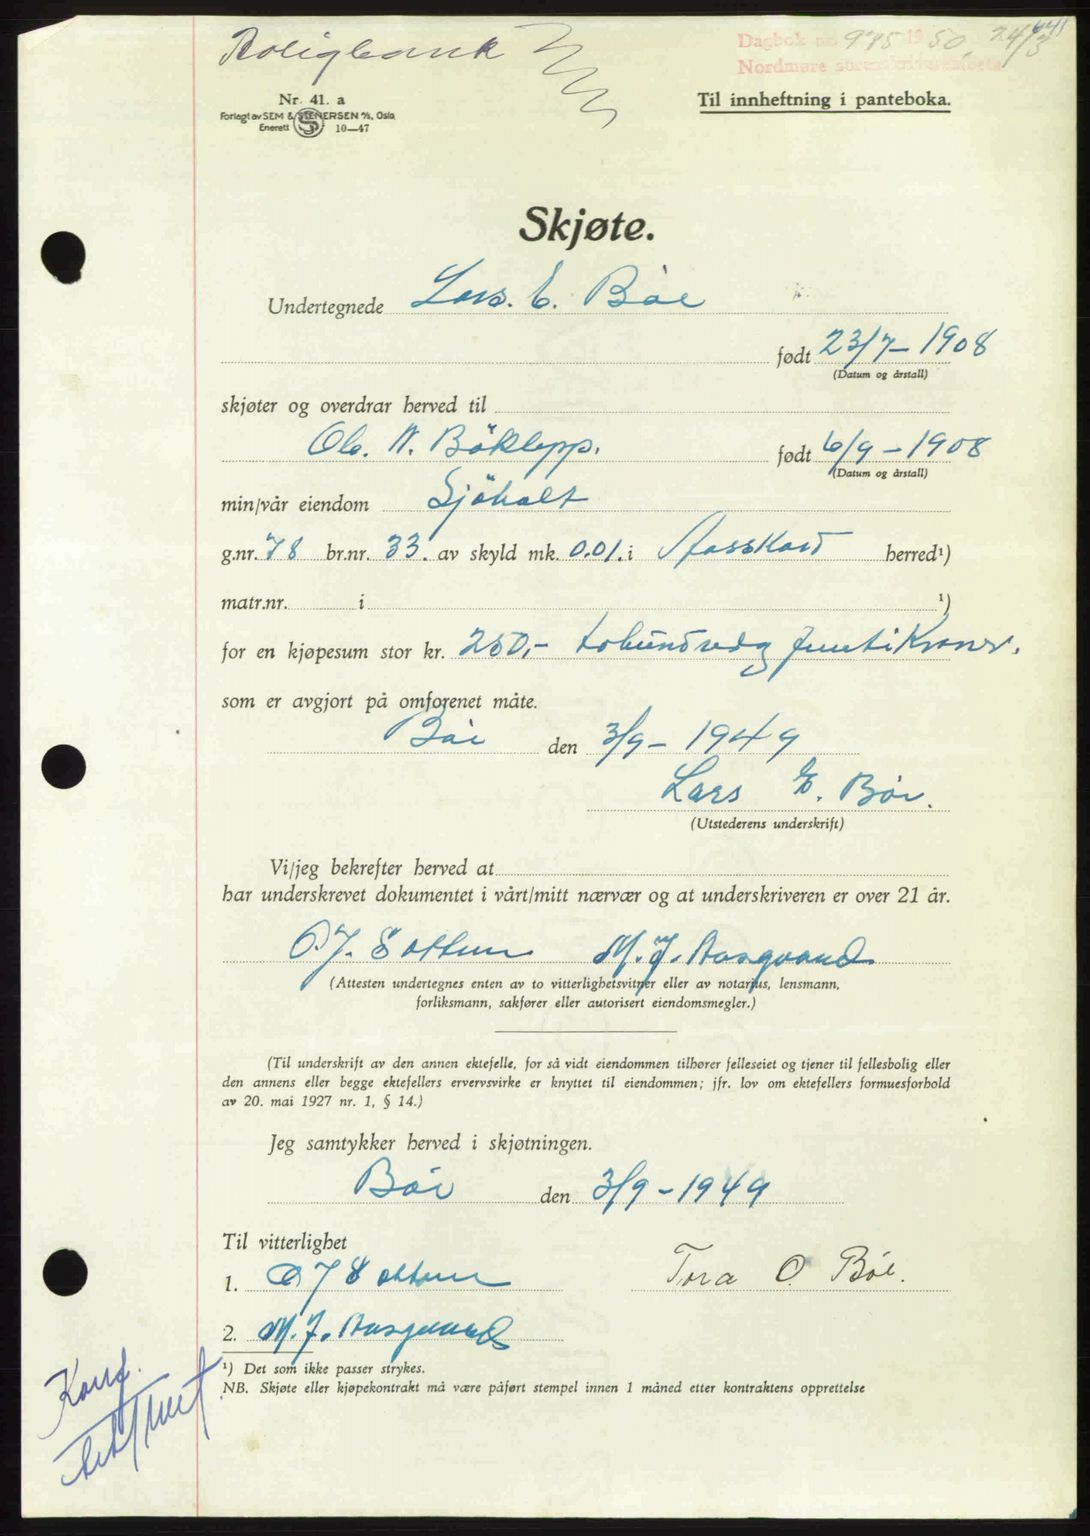 Boligbank
Dagbok nr. 975 1950, 24/3
Nordmøre sorenskriverembete
641
Nr. 41. a
Forlagt av SEM & STENERSEN A/S, Oslo
Enerett S 10—47
Til innheftning i panteboka.
Skjøte.
Undertegnede Lars. E. Bøe
født 23/7 – 1908
(Datum og årstall)
skjøter og overdrar herved til
Ole. N. Böklepp. født 6/9 – 1908
(Datum og årstall)
min/vår eiendom Sjöholt
g.nr. 78 br.nr. 33. av skyld mk. 0.01. i herred¹)
matr.nr. i ¹)
for en kjøpesum stor kr. 250,- tohundredog femti Kroner.
som er avgjort på omforenet måte.
Bøe den 3/9 – 1949
Lars E. Bøe.
(Utstederens underskrift)
Vi/jeg bekrefter herved at
har underskrevet dokumentet i vårt/mitt nærvær og at underskriveren er over 21 år.
O.J. Settem M. J. Aasgaard
(Attesten undertegnes enten av to vitterlighetsvitner eller av notarius, lensmann,
forliksmann, sakfører eller autorisert eiendomsmegler.)
(Til underskrift av den annen ektefelle, for så vidt eiendommen tilhører felleseiet og tjener til fellesbolig eller
den annens eller begge ektefellers ervervsvirke er knyttet til eiendommen; jfr. lov om ektefellers formuesforhold
av 20. mai 1927 nr. 1, § 14.)
Jeg samtykker herved i skjøtningen.
Bøe den 3/9 – 1949
Til vitterlighet
1. O J Settem Tora O. Bøe.
2. M. J. Aasgaard
¹) Det som ikke passer strykes.
NB. Skjøte eller kjøpekontrakt må være påført stempel innen 1 måned etter kontraktens opprettelse
Konf.